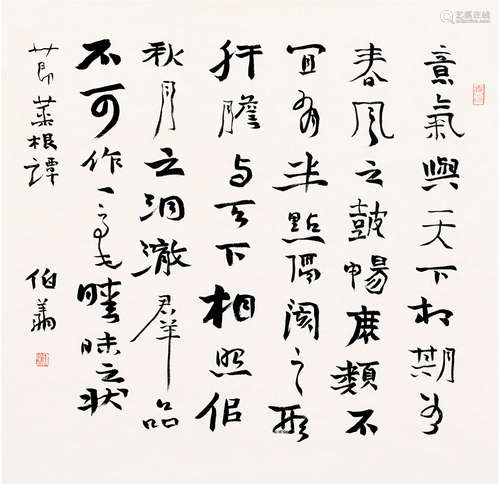 意氣與天下相期如
春風之鼓暢庶類不
宜存半點隔閡之形
肝膽与天下相照佀
秋月之洞澈群品
不可作一毫曖昧之狀
節菜根譚 伯蕭